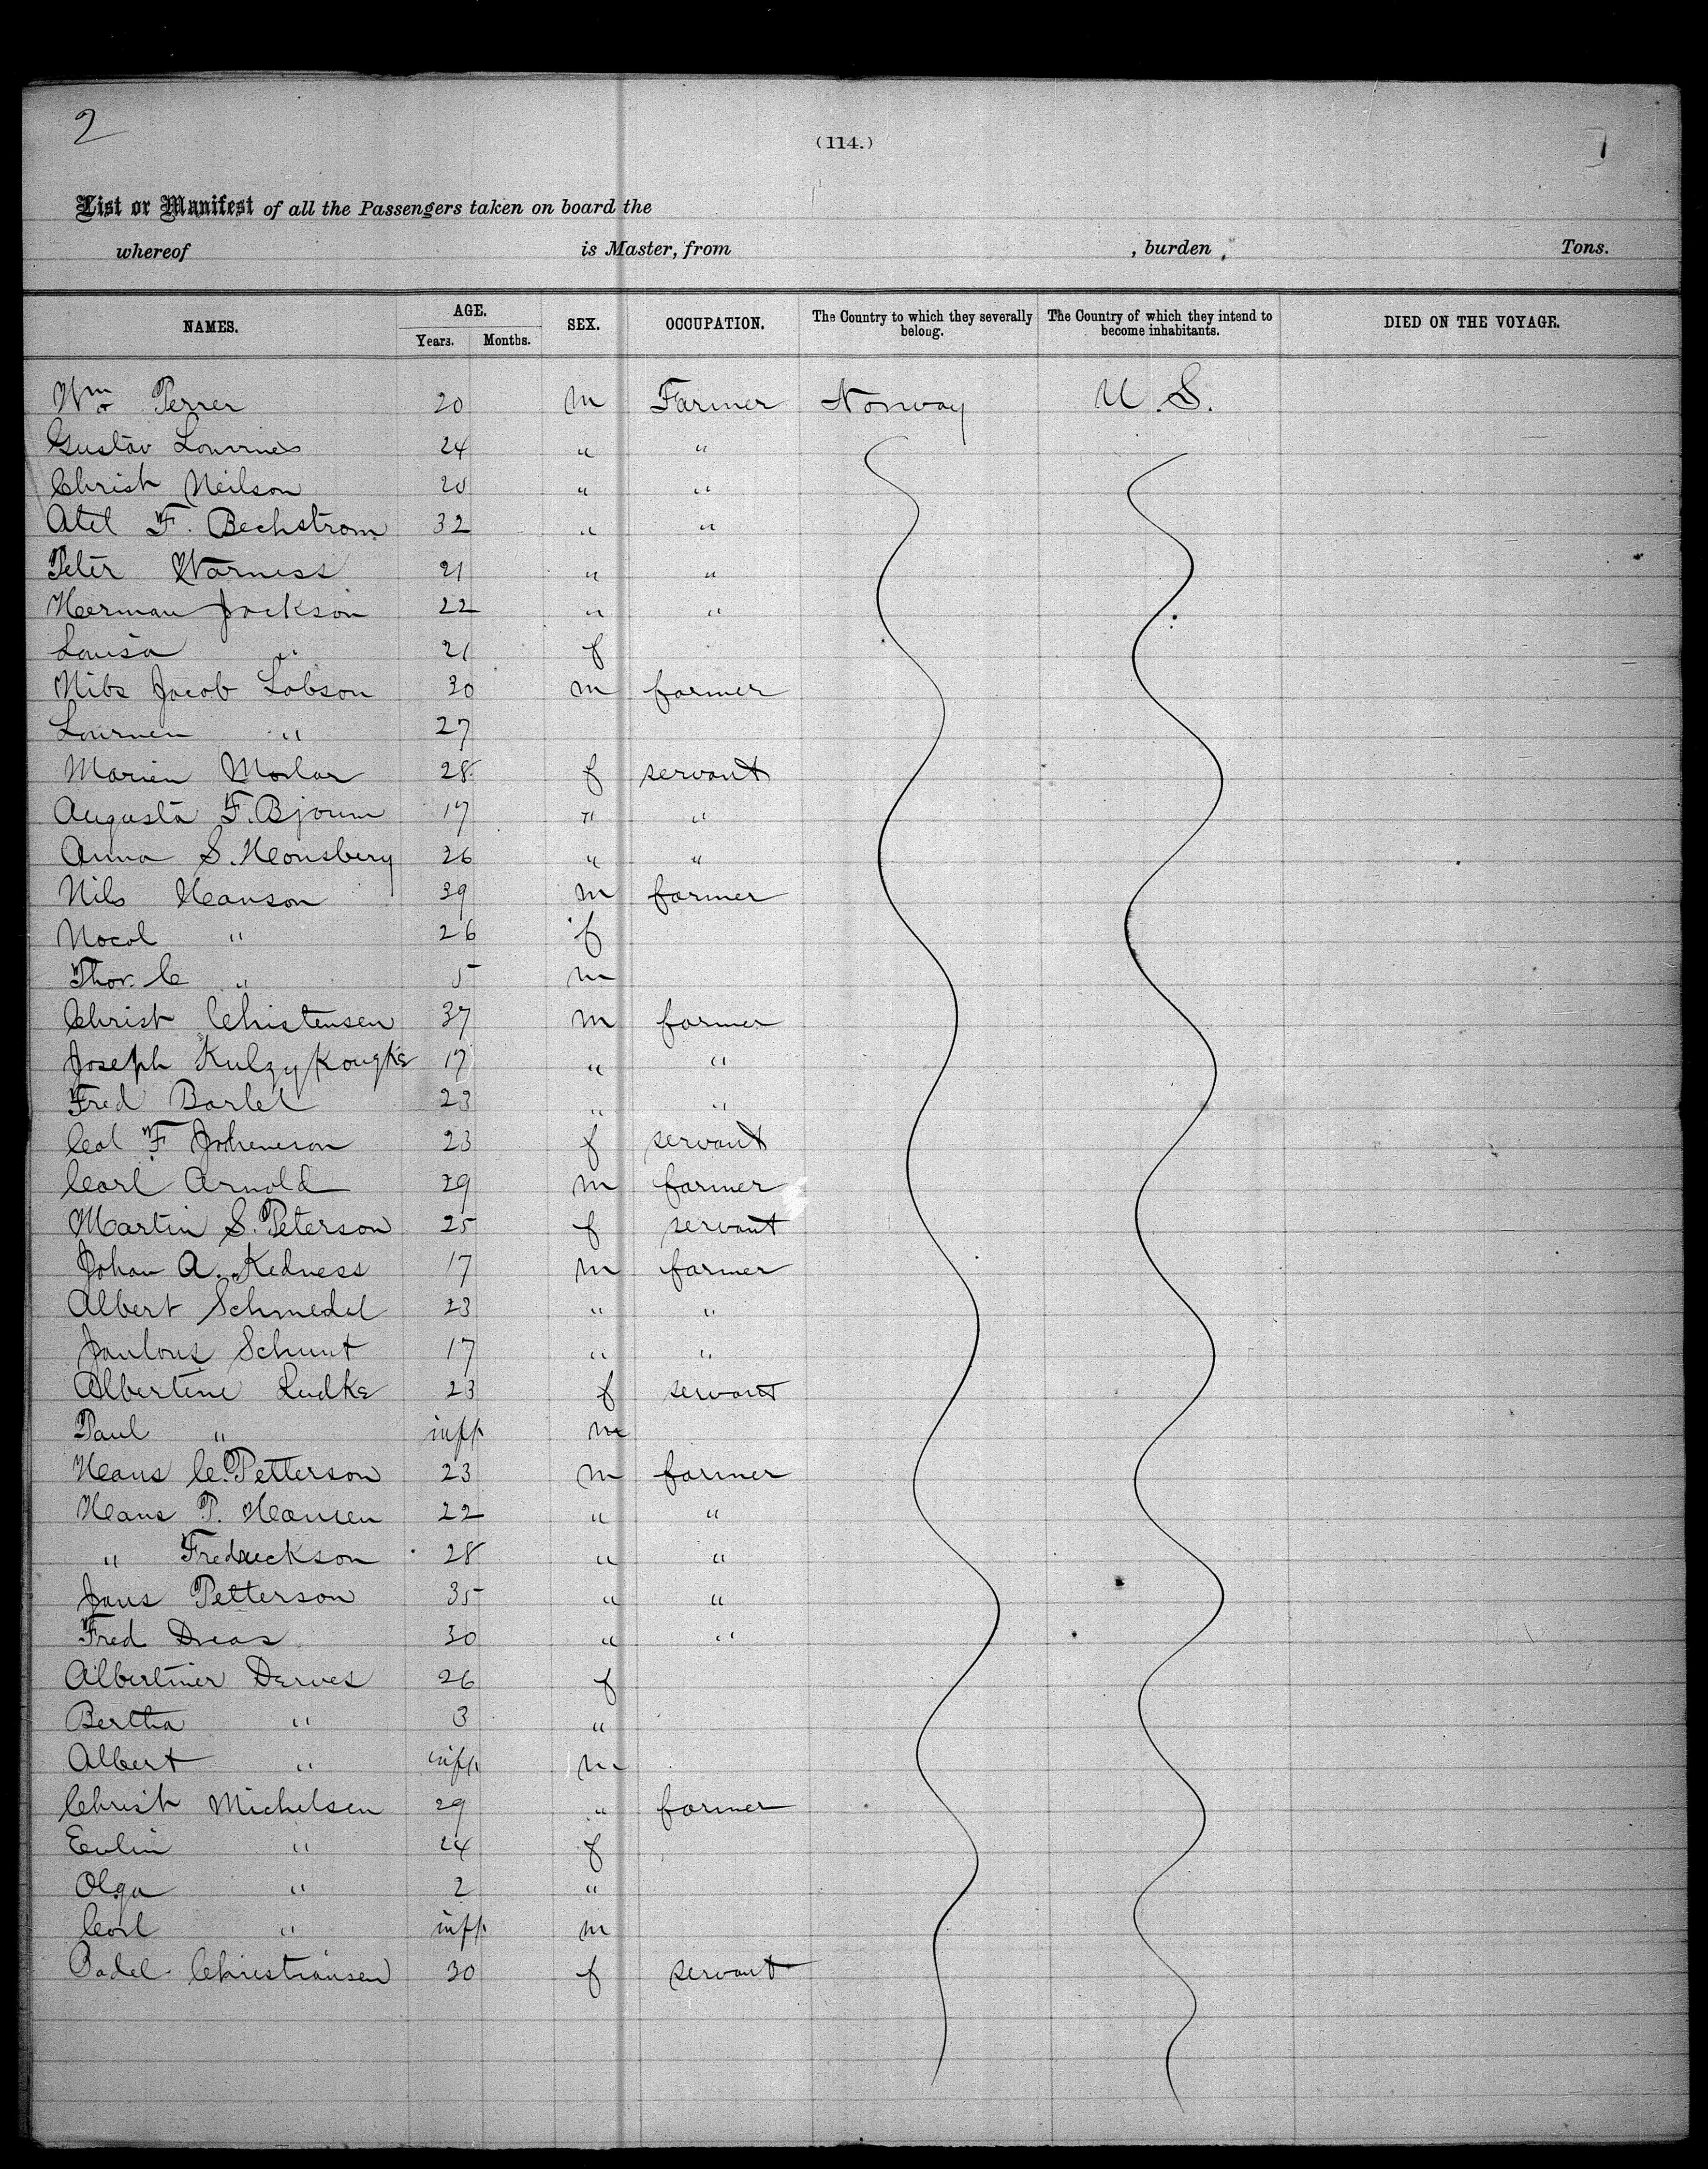 2
(114.)
1
List or Manifest of all the Passengers taken on board the
whereof is Master, from , burden , Tons.
NAMES. AGE. SEX. OCCUPATION. The Country to which they severally belong. The Country of which they intend to become inhabitants. DIED ON THE VOYAGE.
Years. Months.
Wm Perrer 20 m Farmer Norway U.S.
Gustav 24 " "
Christ Neilson 20 " "
F. Bechstrom 32 " "
Peter Warness 21 " "
Herman Jackson 22 " "
Louisa " 21 f
Jacob Lobson 30 m farmer
" 27
Marien 28 f servant
Augusta F. Bjoum 17 " "
Anna S. Honsbery 26 " "
Nils Hanson 39 m farmer
Nocol " 26 f
Thor. C " 5 m
Christ Christensen 37 m farmer
Joseph 17 " "
Fred Bartel 23 " "
F 23 f servant
Carl Arnold 29 m farmer
Martin S. Peterson 25 f servant
Johan A. Kedness 17 m farmer
Albert Schmedel 23 " "
Schunt 17 " "
Albertine Ludke 23 f servant
Paul " inft m
Hans C. Petterson 23 m farmer
Hans P. Hansen 22 " "
" Fredrickson 28 " "
Jans Petterson 35 " "
Fred Dreas 30 " "
Albertiner Derves 26 f
Bertha " 3 "
Albert " inft m
Christ Michelsen 29 " farmer
Evlin " 24 f
Olga " 2 "
Carl " inft m
Bodel Christiansen 30 f servant